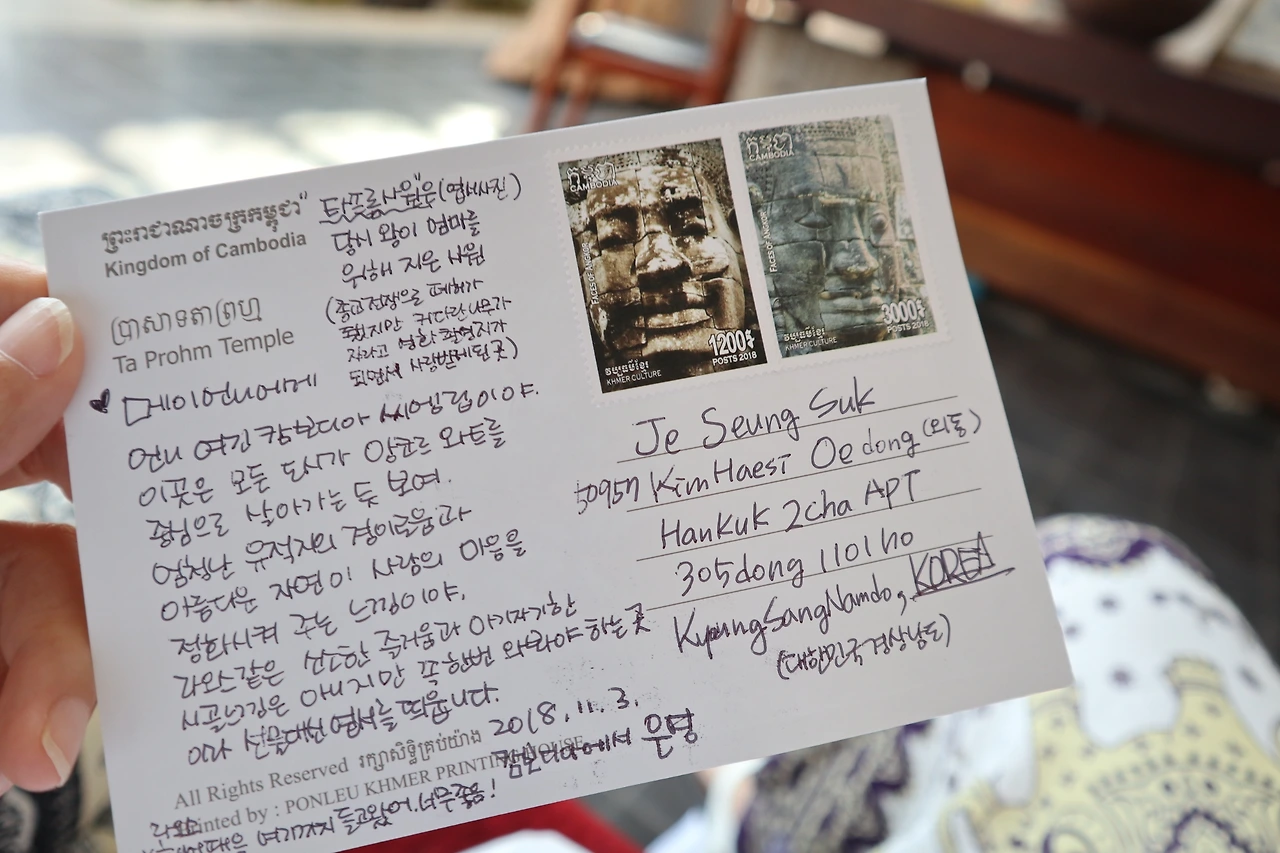 ព្រះរាជាណាចក្រកម្ពុជា
Kingdom of Cambodia
ប្រាសាទតាព្រហ្ម
Ta Prohm Temple
"타프롬사원"은 (엽서사진)
당시 왕이 엄마를
위해 지은 사원
(종교전쟁으로 폐허가
됐지만 커다란 나무가
자라고 영화 촬영지가
되면서 사랑받게 된 곳)
♥ 메이언니에게
언니 여긴 캄보디아 씨엠립이야.
이곳은 모든 도시가 앙코르 와트를
중심으로 살아가는 듯 보여.
엄청난 유적지의 경이로움과
아름다운 자연이 사람의 마음을
정화시켜 주는 느낌이야.
라오스같은 소소한 즐거움과 아기자기한
시골느낌은 아니지만 꼭 한번 와봐야 하는 곳
이라 선물대신 엽서를 띄웁니다.
2018. 11. 3.
캄보디아에서 은영
All Rights Reserved រក្សាសិទ្ធិគ្រប់យ៉ាង
Printed by : PONLEU KHMER PRINTING HOUSE
라오스
여기까지 들고왔어. 너무좋음!
កម្ពុជា
CAMBODIA
FACES OF ANGKOR
1200៛
POSTS 2018
វប្បធម៌ខ្មែរ
KHMER CULTURE
កម្ពុជា
CAMBODIA
FACES OF ANGKOR
3000៛
POSTS 2018
វប្បធម៌ខ្មែរ
KHMER CULTURE
Je Seung Suk
50957 KimHaesi Oedong (외동)
Hankuk 2cha APT
305dong 1101ho
KyoungSangNamdo, KOREA
(대한민국경상남도)